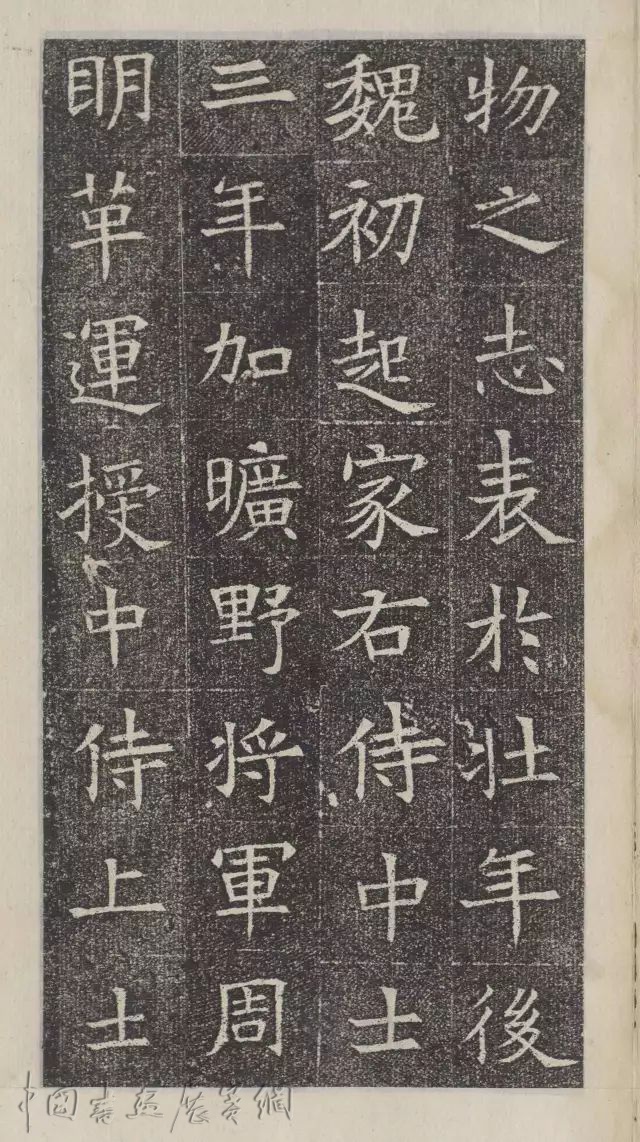 物之志表於壯年後
魏初起家右侍中士
三年加曠野将軍周
眀革運授中侍上士
中国書法